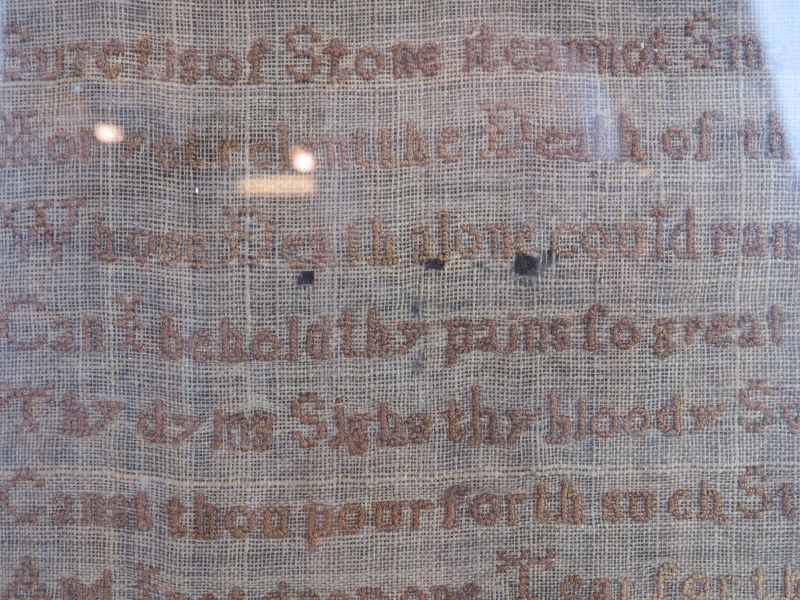 Sure tis of Stone it cannot Sm
Nor yet relent the Death of th
Whose Death alone could ran
Can I behold thy pains so great
Thy dying Sighs thy bloody Sw
Canst thou pour forth such St
And I not drop one Tear for th